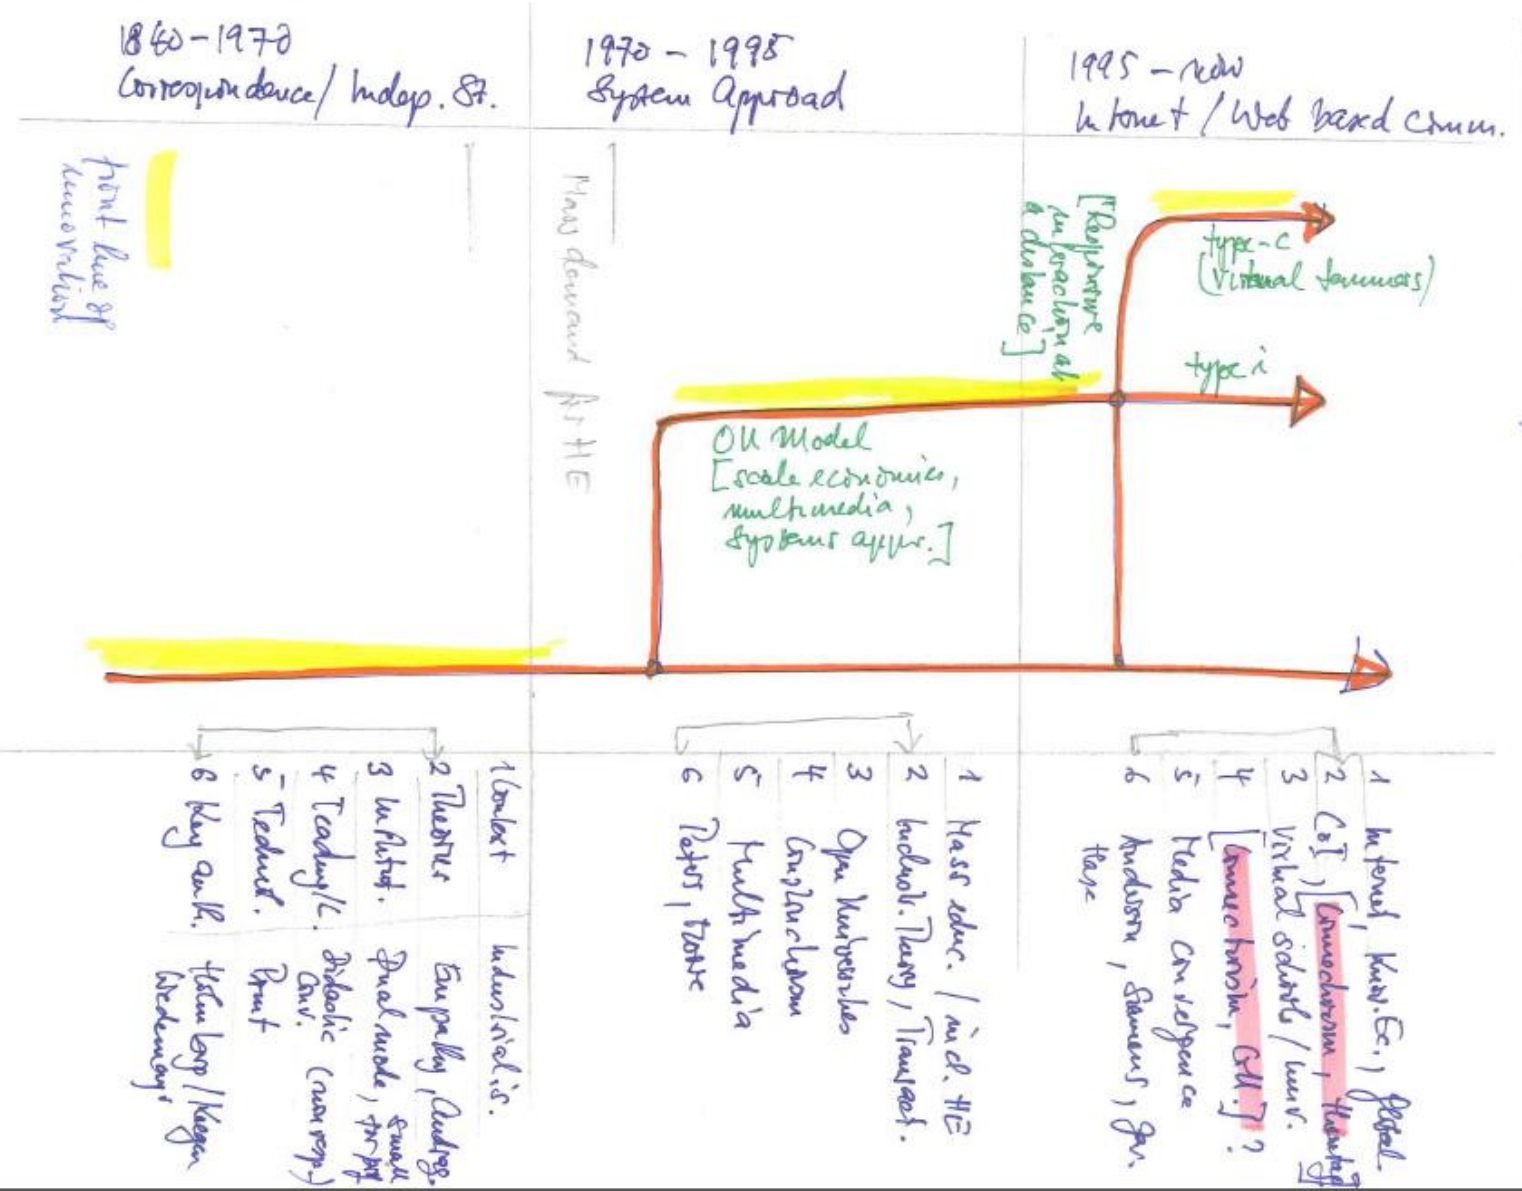 1840-1970
Correspondence/ Indep. St.
1970 - 1995
System Approach
1995 - now
Internet / Web based comm.
front line of
innovation
Mass demand for HE
[Responsive
interaction at
a distance]
type-c
(virtual seminars)
type i
OU Model
[scale economies,
multimedia,
systems appr.]
1 Context Industrialis.
2 Theories Empathy, Andrag.
3 Institut. Dual mode, small
for prof
4 Teaching/L. Didactic
Conv. (non resp.)
5 Technol. Print
6 Key auth. Holmberg/Keegan
Wedemeyer
1 Mass educ. / incl. HE
2 Industr. Theory, Transact.
3 Open Universities
4 Constructivism
5 Multimedia
6 Peters, Moore
1 Internet, Know. Ec., global.
2 CoI, [Connectivism,
3 Virtual schools / univ.
4 [Connectivism, ?
5 Media convergence
6 Anderson, Siemens, Gar.